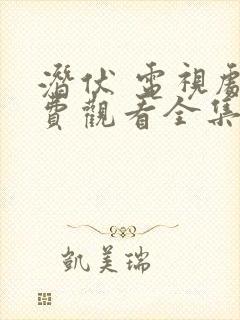 潛伏 電視劇
費觀看全集
凱美瑞